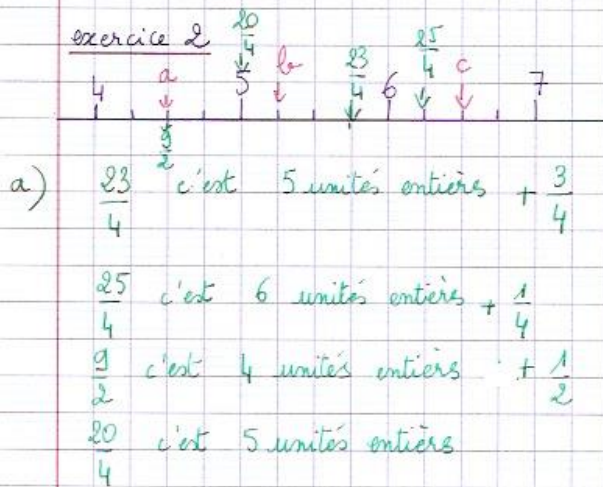 exercice 2 20/4 b 23/4 25/4 c
a
4 5 6 7
9/2
a) 23/4 c'est 5 unités entièrs + 3/4
25/4 c'est 6 unités entièrs + 1/4
9/2 c'est 4 unités entièrs + 1/2
20/4 c'est 5 unités entièrs